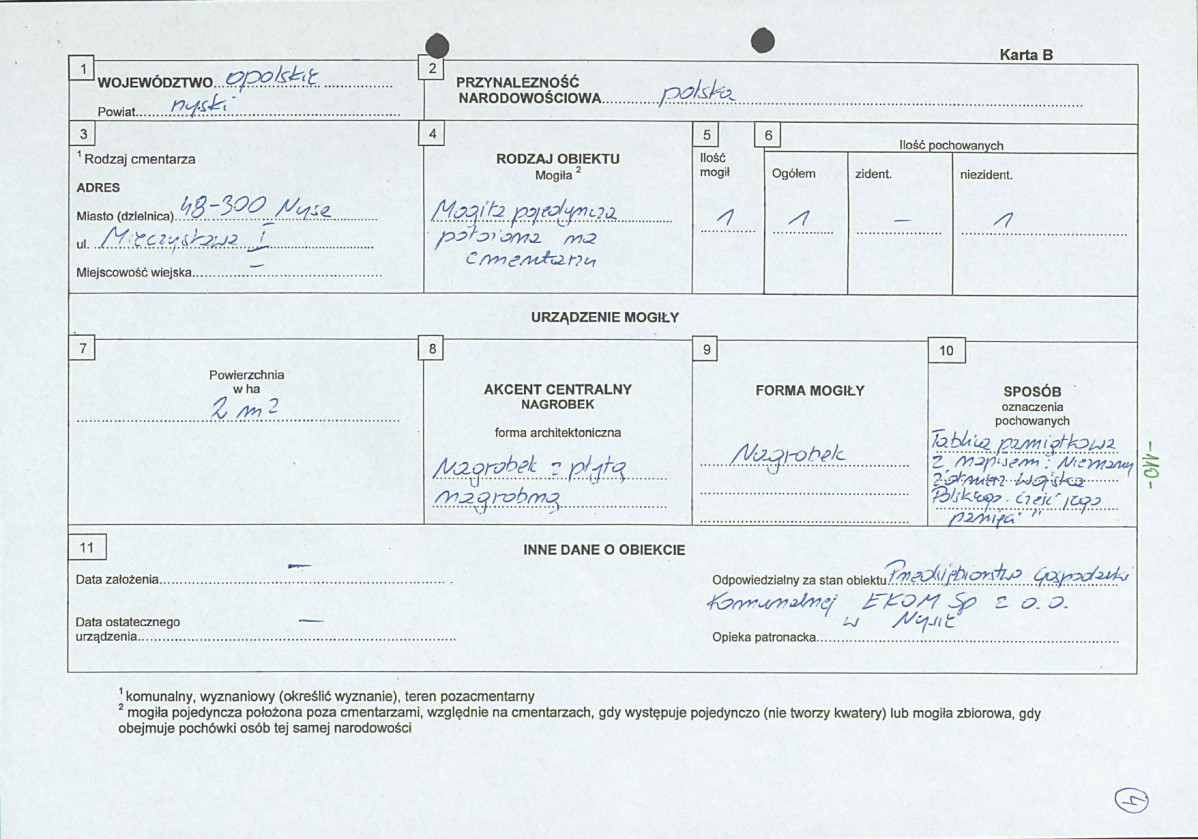 Karta B
1
WOJEWÓDZTWO opolskie
Powiat nyski
2
PRZYNALEZNOŚĆ
NARODOWOŚCIOWA polska
3
1 Rodzaj cmentarza
ADRES
Miasto (dzielnica) 48-300 Nysa
ul. Mieczysława I
Miejscowość wiejska –
4
RODZAJ OBIEKTU
Mogiła 2
Mogiła pojedyncza
położona na
cmentarzu
5
Ilość
mogił
1
6
Ilość pochowanych
Ogółem
1
zident.
–
niezident.
1
URZĄDZENIE MOGIŁY
7
Powierzchnia
w ha
2 m2
8
AKCENT CENTRALNY
NAGROBEK
forma architektoniczna
Nagrobek z płytą
nagrobną
9
FORMA MOGIŁY
Nagrobek
10
SPOSÓB
oznaczenia
pochowanych
Tablica pamiątkowa
z napisem: Nieznany
żołnierz Wojska
Polskiego. Cześć jego
pamięci"
11
INNE DANE O OBIEKCIE
Data założenia –
Data ostatecznego
urządzenia –
Odpowiedzialny za stan obiektu Przedsiębiorstwo Gospodarki
Komunalnej EKOM Sp z o.o.
w Nysie
Opieka patronacka
1 komunalny, wyznaniowy (określić wyznanie), teren pozacmentarny
2 mogiła pojedyncza położona poza cmentarzami, względnie na cmentarzach, gdy występuje pojedynczo (nie tworzy kwatery) lub mogiła zbiorowa, gdy
obejmuje pochówki osób tej samej narodowości
4